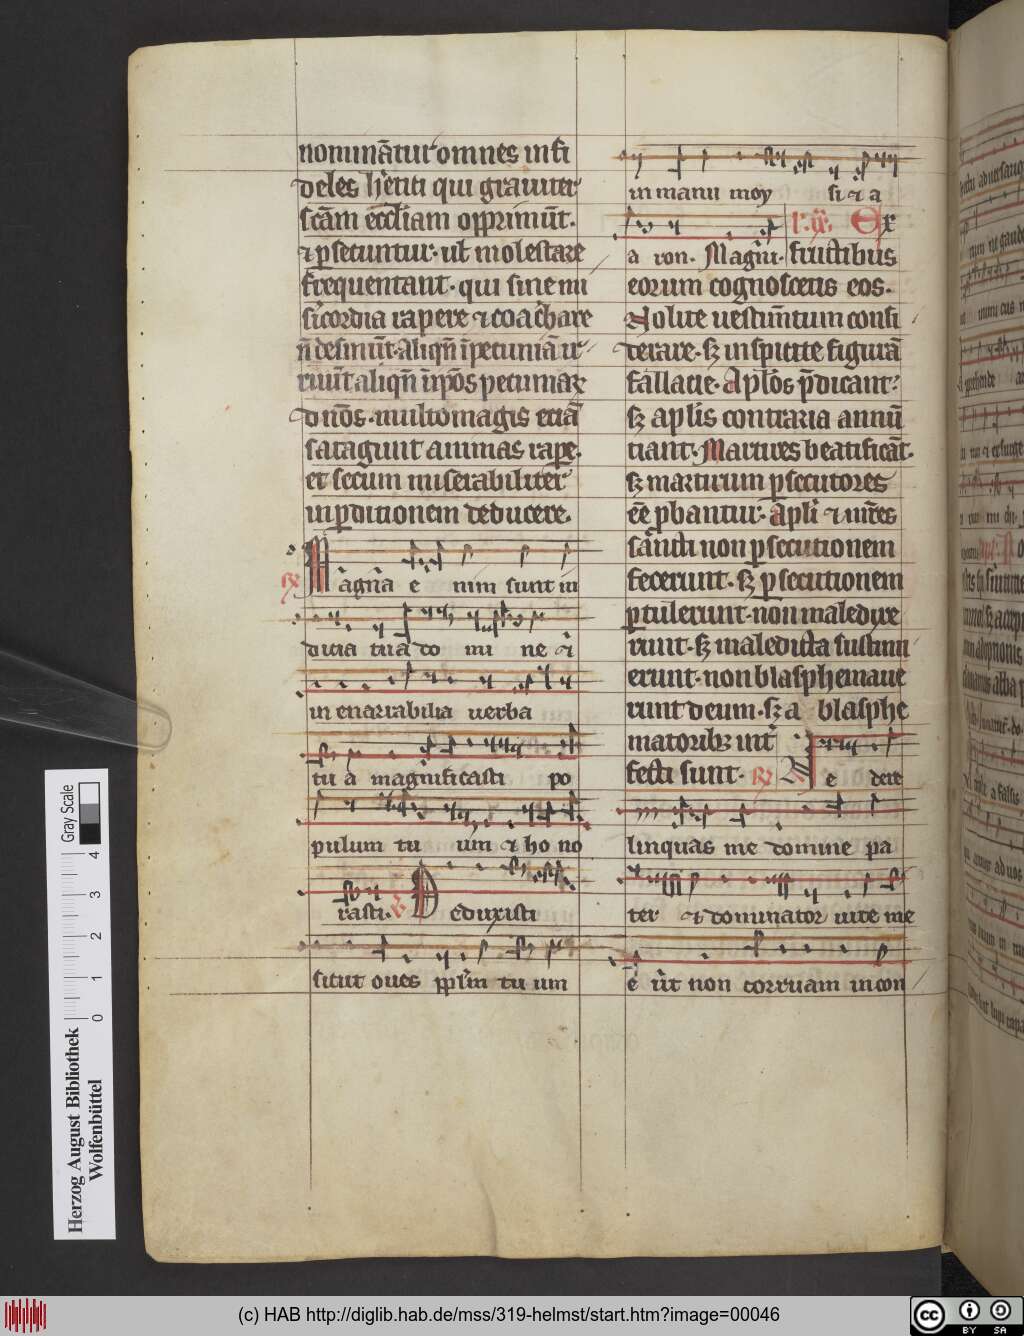 nominātur omnes infi
deles h̄etici qui grauiter
sc̄am eccl̄iam opprimūt.
⁊ p̱secuntur. ul̄ molestare
frequentant. qui sine mi
sicordia rapere ⁊ coac̄bare
n̄ desinūt. Aliqn̄ ī pecuniā ir
ruūt aliqn̄
dn̄os. multo magis eciā
satagunt animas rape̱.
et secum miserabiliter
in p̱ditionem deducere.
R̸ Magn̄a e nim sunt iu
dicia tua do mi ne ⁊
in enarrabilia uerba
tu a magnificasti po
pulum tu um ⁊ ho no
rasti. V̸ Deduxisti
sicut oues pp̄lm tu um
in manu moy si ⁊ a
a ron. Magn̄i. Ex
fructibus
eorum cognoscetis eos.
Nolite uestim̄tum consi
derare. sꝫ inspicite figurā
fallacie. Apl̄os p̄dicant.
sꝫ apl̄is contraria annū
tiant. Martires beatificāt.
sꝫ martirum p̱secutores
eē p̱bantur. apl̄i ⁊ m̄res
sancti non p̱secutionem
fecerunt. sꝫ p̱secutionem
p̱tulerunt. non maledixe
runt. sꝫ maledicta sustinu
erunt. non blasphemaue
runt deum. sꝫ a blasphe
matoribꝫ int̄
fecti sunt. R̸ Ne dere
linquas me domine pa
ter ⁊ dominator uite me
e ūt non corruam in con
Herzog August Bibliothek
Wolfenbüttel
Gray Scale
0 1 2 3 4
(c) HAB http://diglib.hab.de/mss/319-helmst/start.htm?image=00046
cc BY SA